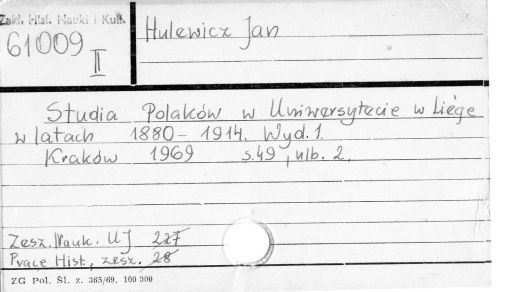 Zakł. Hist. Nauki i Kult.
61009
II
Hulewicz Jan
Studia Polaków w Uniwersytecie w Liège
w latach 1880-1914. Wyd. 1.
Kraków 1969 s. 49, nlb. 2.
Zesz. Nauk. UJ 227
Prace Hist., zesz. 28
ZG Pol. Śl. z. 365/69. 100 300